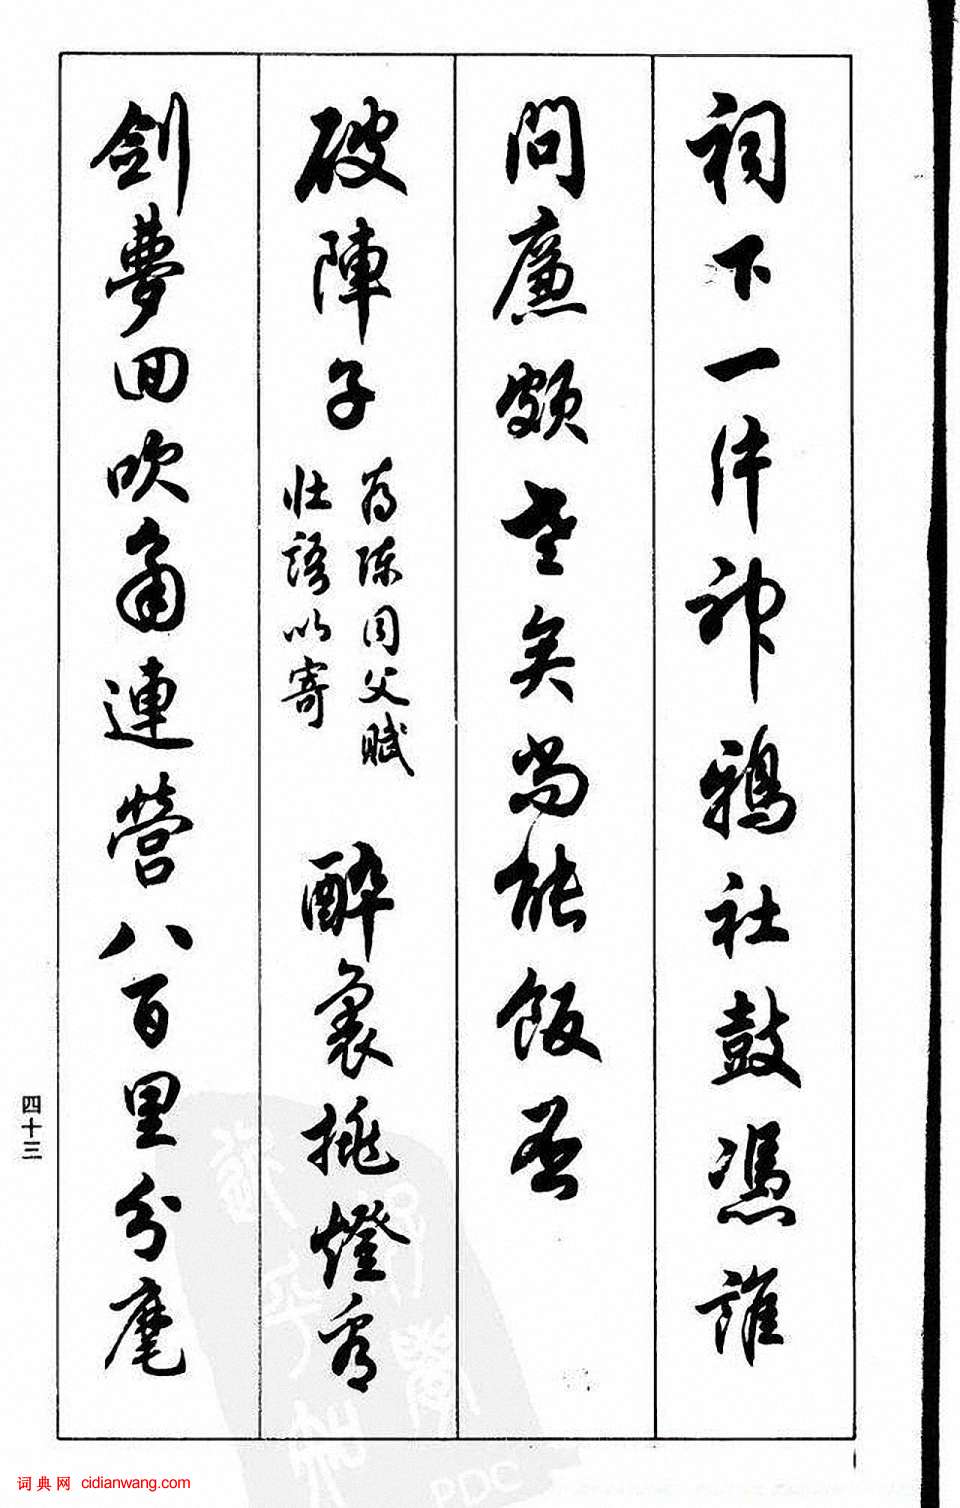 祠下一片神鴉社鼓憑誰
問廉頗老矣尚能飯否
破陣子
為陳同父賦
壯語以寄
醉裏挑燈看
劍夢回吹角連營八百里分麾
四十三
词典网 cidianwang.com